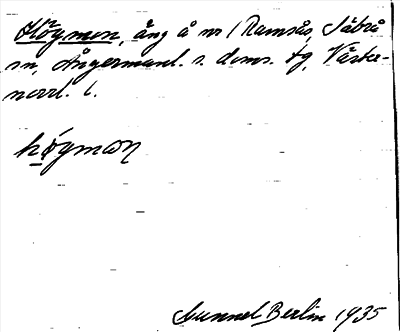 Högmon, äng å nr 1 Ramsås, Säbrå
sn, Ångermanl. s. doms. tg, Väster-
norrl. l.
högmon
Gunnel Berlin 1935